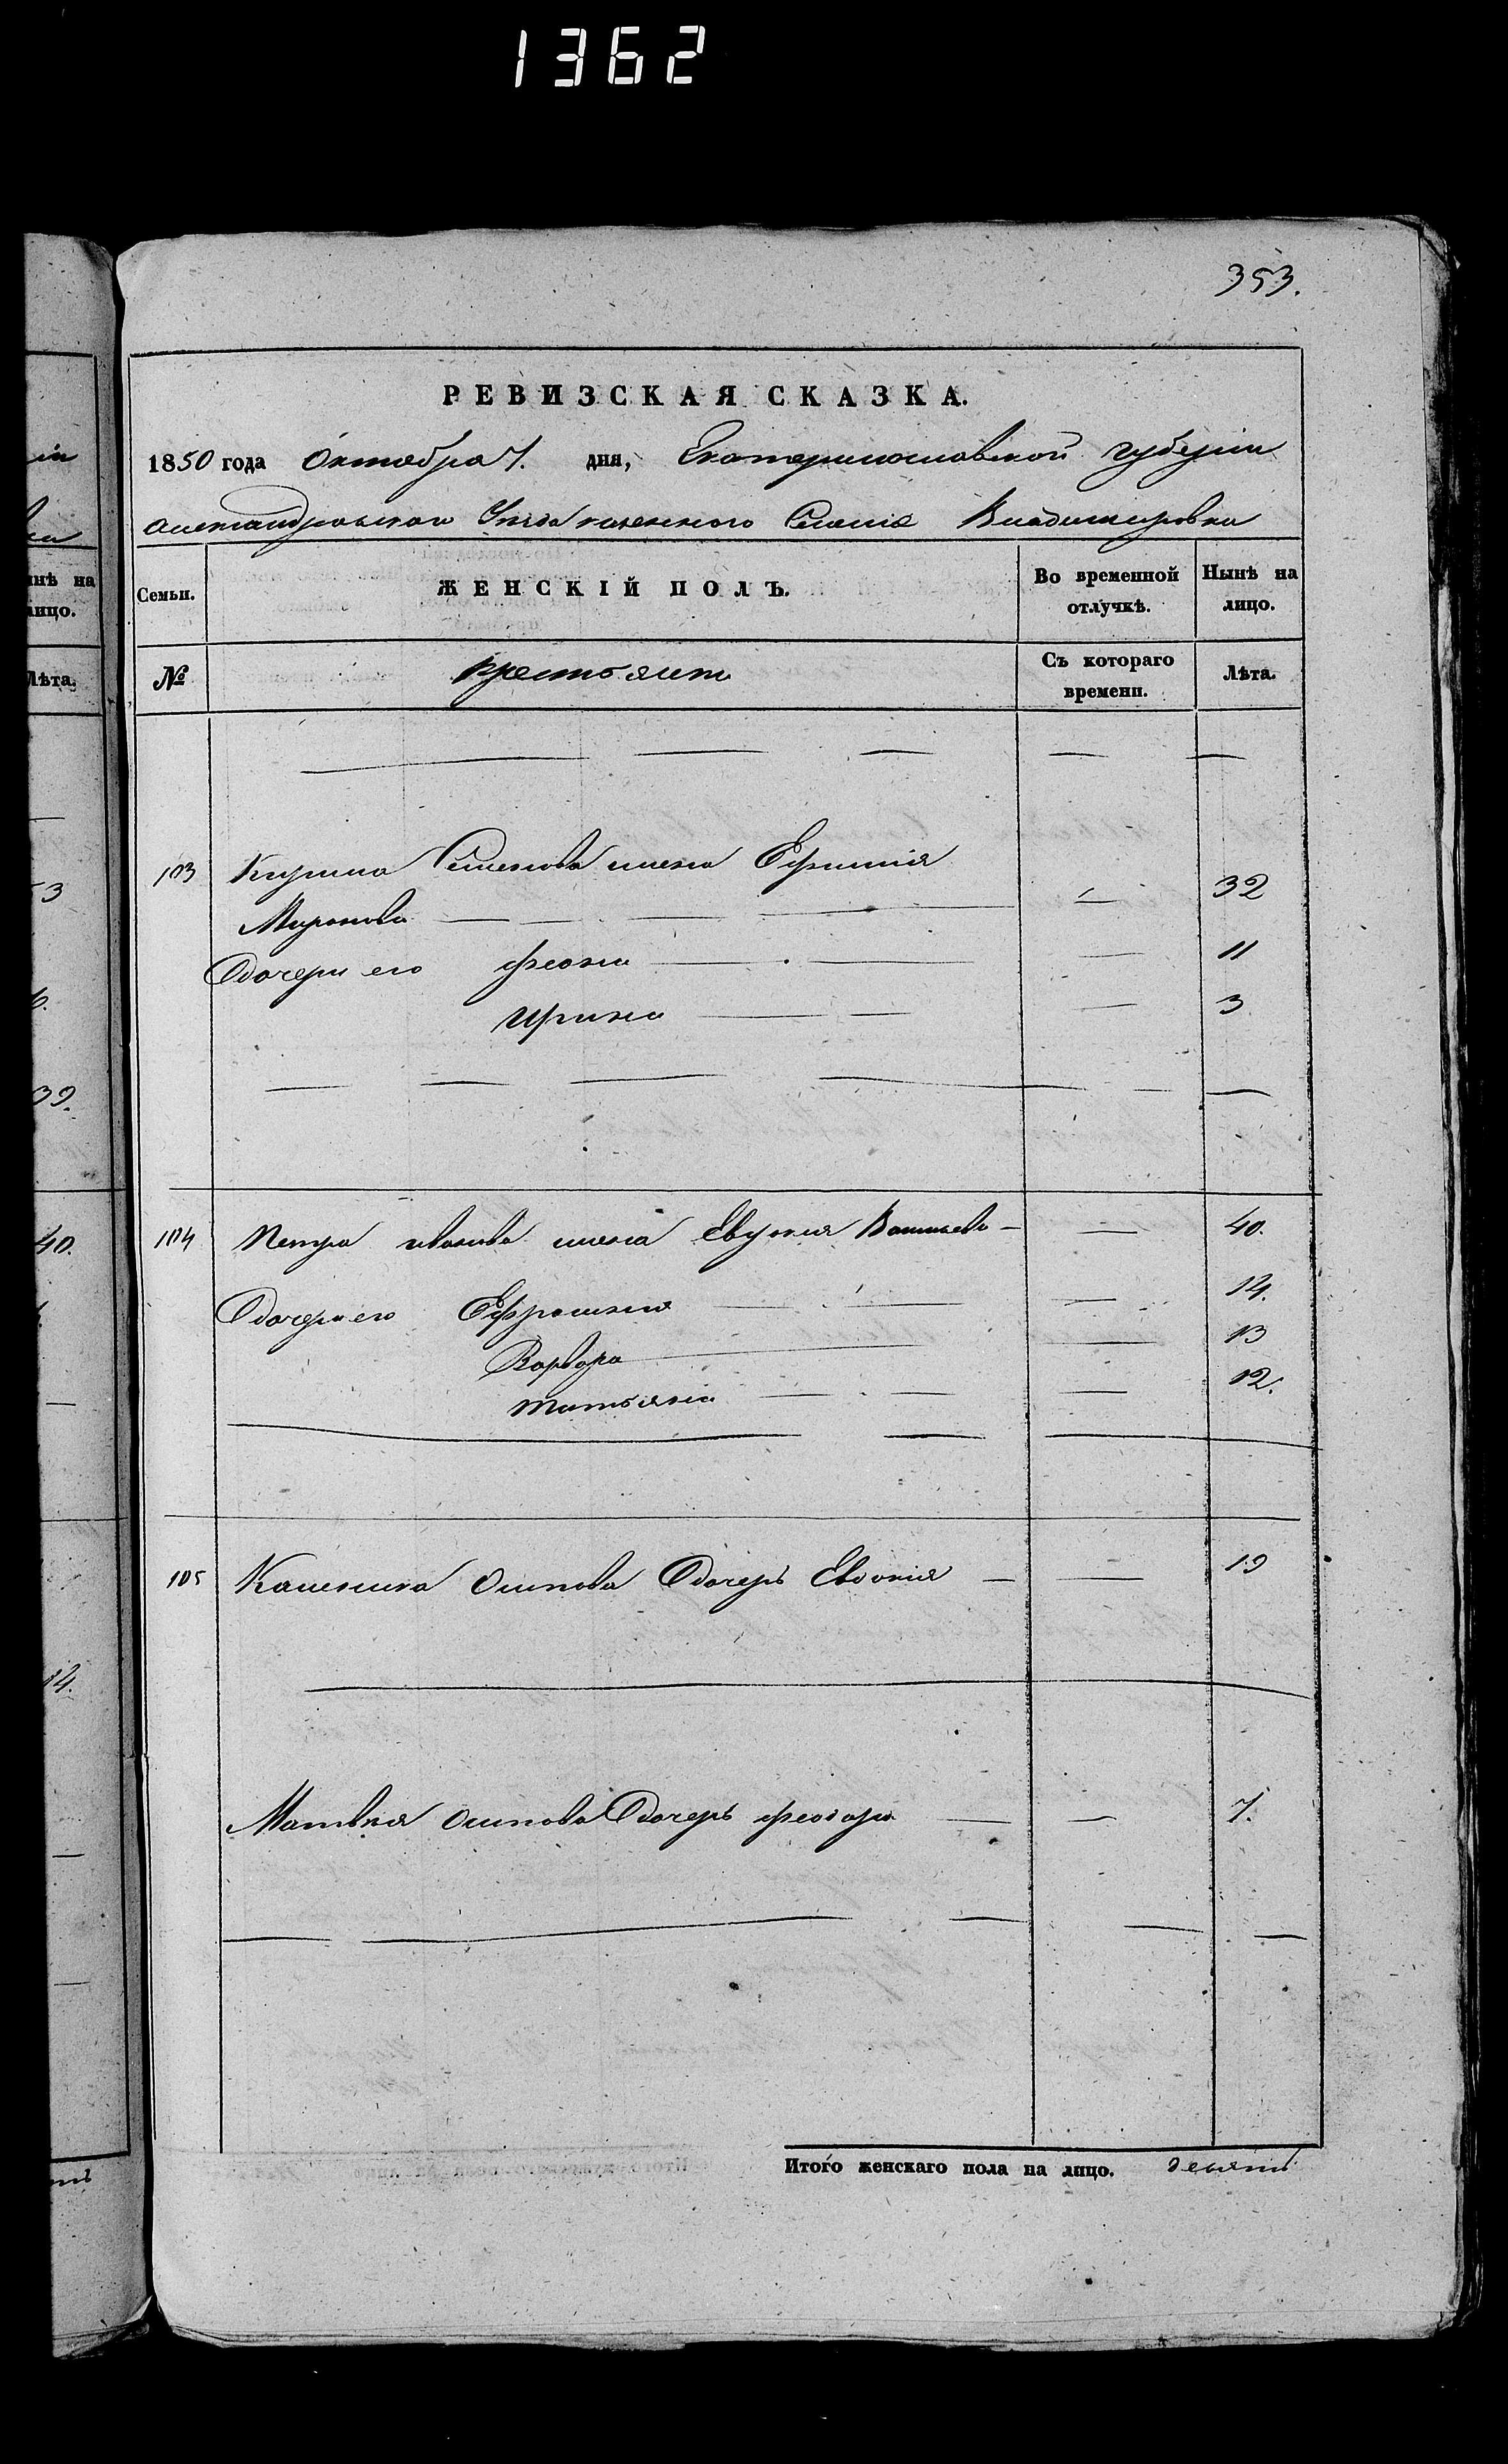 1362
353.
РЕВИЗСКАЯ СКАЗКА.
1850 года Октобра 7. дня, Екатеринославской губерніи
Александровскаго Уезда казенного Селенія Владимировки
Семьи.
ЖЕНСКІЙ ПОЛЪ.
Во временной отлучкѣ.
Нынѣ на лицо.
№
крестьяне
Съ котораго времени.
Лѣта.
103 Семенова жена Ефимія
Миронова — 32
Дочери его Феона — 11
Ирина — 3
104 Петра иванова жена Евгения Васильева — 40.
Дочери его Ефросиния — 14.
Варвара — 13
татьяна — 12.
105 Каленика Осипова Дочерь Евдокия — 19
Матвея Осипова Дочерь феодора — 7.
Итого женскаго пола на лицо. девять
нѣ на
лицо.
Лѣта.
53
39.
40.
14.